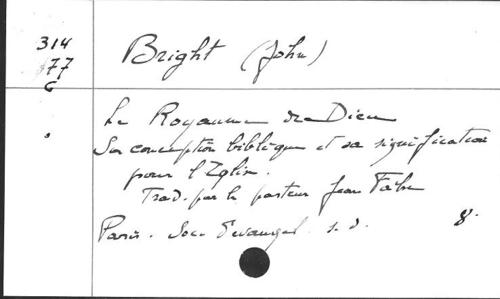 314
77
C
Bright (John)
Le Royaume de Dieu
Sa conception biblique et sa signification
pour l'Eglise.
Trad. par le pasteur Jean Fabre
Paris. Soc. d'évangel. s.d. 8.